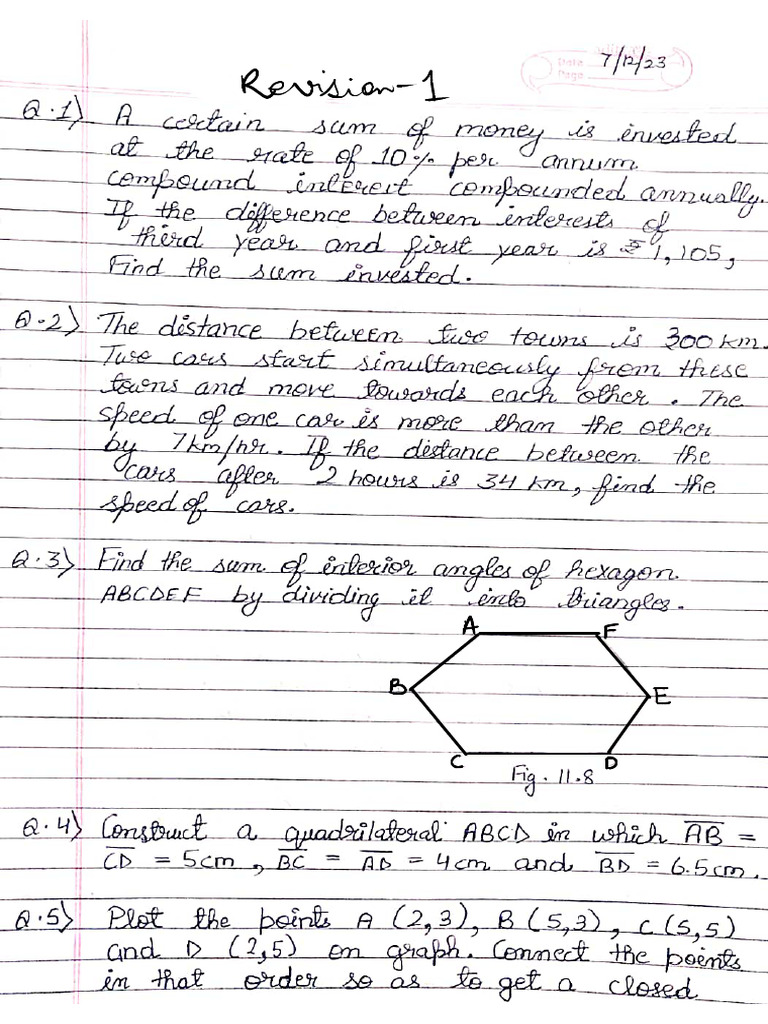 Date 7/12/23
Page
Revision-1
Q.1) A certain sum of money is invested
at the rate of 10% per annum
compound interest compounded annually.
If the difference between interests of
third year and first year is ₹1,105,
Find the sum invested.
Q.2) The distance between two towns is 300 km.
Two cars start simultaneously from these
towns and move towards each other. The
speed of one car is more than the other
by 7km/hr. If the distance between the
cars after 2 hours is 34 km, find the
speed of cars.
Q.3) Find the sum of interior angles of hexagon
ABCDEF by dividing it into triangles.
A F
B E
C D
Fig. 11.8
Q.4) Construct a quadrilateral ABCD in which A̅B̅ =
C̅D̅ = 5cm, B̅C̅ = A̅D̅ = 4cm and B̅D̅ = 6.5cm.
Q.5) Plot the points A (2,3), B (5,3), C (5,5)
and D (2,5) on graph. Connect the points
in that order so as to get a closed